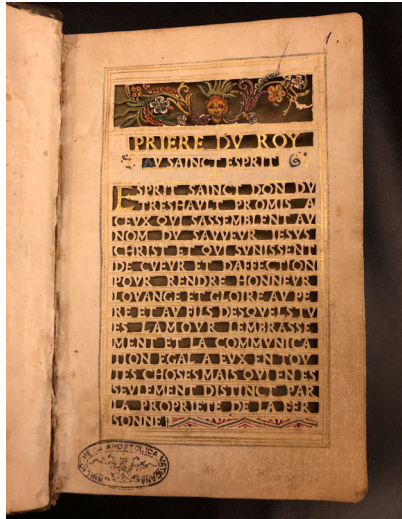 1.
PRIERE DV ROY
AV SAINCT ESPRIT
ESPRIT SAINCT DON DV
TRESHAVLT PROMIS A
CEVX QVI SASSEMBLENT AV
NOM DV SAVVEVR IESVS
CHRIST ET QVI SVNISSENT
DE CVEVR ET DAFFECTION
POVR RENDRE HONNEVR
LOVANGE ET GLOIRE AV PE
RE ET AV FILS DESQVELS TV
ES LAMOVR LEMBRASSE
MENT ET LA COMMVNICA
TION EGAL A EVX EN TOV
TES CHOSES MAIS QVI EN ES
SEVLEMENT DISTINCT PAR
LA PROPRIETE DE LA PER
SONNE
APOSTOLICA